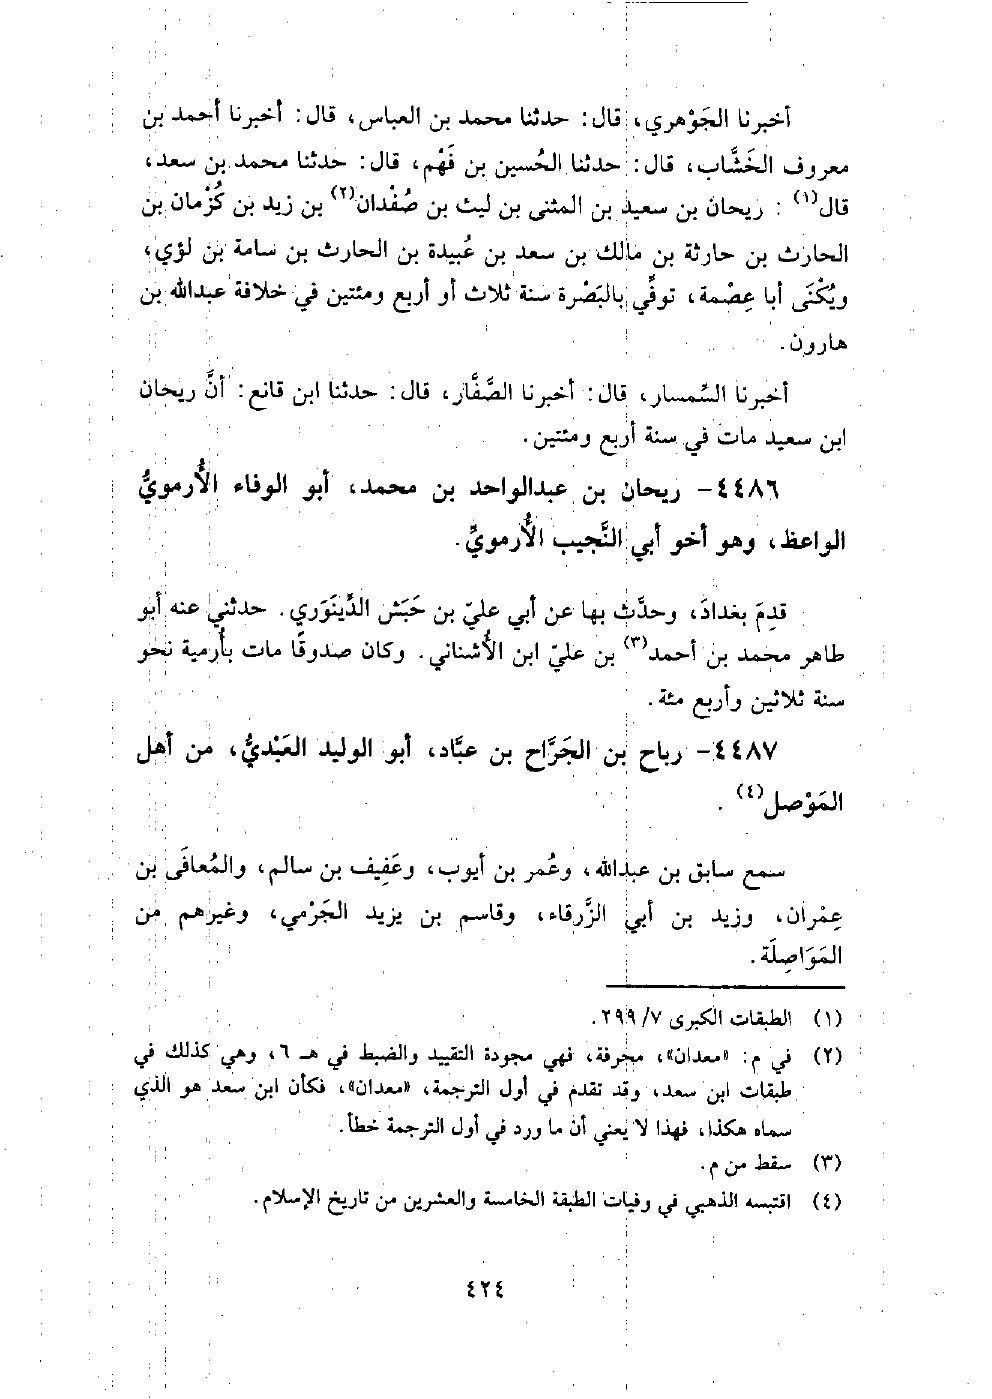 أخبرنا الجَوْهري، قال: حدثنا محمد بن العباس، قال: أخبرنا أحمد بن
معروف الخَشَّاب، قال: حدثنا الحُسين بن فَهْم، قال: حدثنا محمد بن سعد،
قال(١) : ريحان بن سعيد بن المثنى بن ليث بن صُفْدان(٢) بن زيد بن كُزْمان بن
الحارث بن حارثة بن مالك بن سعد بن عُبيدة بن الحارث بن سامة بن لؤي،
ويُكْنَى أبا عِصْمة، توفِّي بالبَصْرة سنة ثلاث أو أربع ومئتين في خلافة عبدالله بن
هارون.
أخبرنا السِّمسار، قال: أخبرنا الصَّفَّار، قال: حدثنا ابن قانع: أنَّ ريحان
ابن سعيد مات في سنة أربع ومئتين.
٤٤٨٦- ريحان بن عبدالواحد بن محمد، أبو الوفاء الأُرمويُّ
الواعظ، وهو أخو أبي النَّجيب الأُرمويِّ.
قدِمَ بغدادَ، وحدَّث بها عن أبي عليّ بن حَبَش الدِّينَوَري. حدثني عنه أبو
طاهر محمد بن أحمد(٣) بن عليّ ابن الأُشناني. وكان صدوقًا مات بأُرمية نحو
سنة ثلاثين وأربع مئة.
٤٤٨٧- رباح بن الجَرَّاح بن عبَّاد، أبو الوليد العَبْديُّ، من أهل
المَوْصل(٤) .
سمع سابق بن عبدالله، وعُمر بن أيوب، وعَفِيف بن سالم، والمُعافَى بن
عِمْران، وزيد بن أبي الزَّرقاء، وقاسم بن يزيد الجَرْمي، وغيرهم من
المَوَاصِلَة.
(١) الطبقات الكبرى ٧/ ٢٩٩.
(٢) في م: «معدان»، محرفة، فهي مجودة التقييد والضبط في هـ ٦، وهي كذلك في
طبقات ابن سعد، وقد تقدم في أول الترجمة، «معدان»، فكأن ابن سعد هو الذي
سماه هكذا، فهذا لا يعني أن ما ورد في أول الترجمة خطأ.
(٣) سقط من م.
(٤) اقتبسه الذهبي في وفيات الطبقة الخامسة والعشرين من تاريخ الإسلام.
٤٢٤